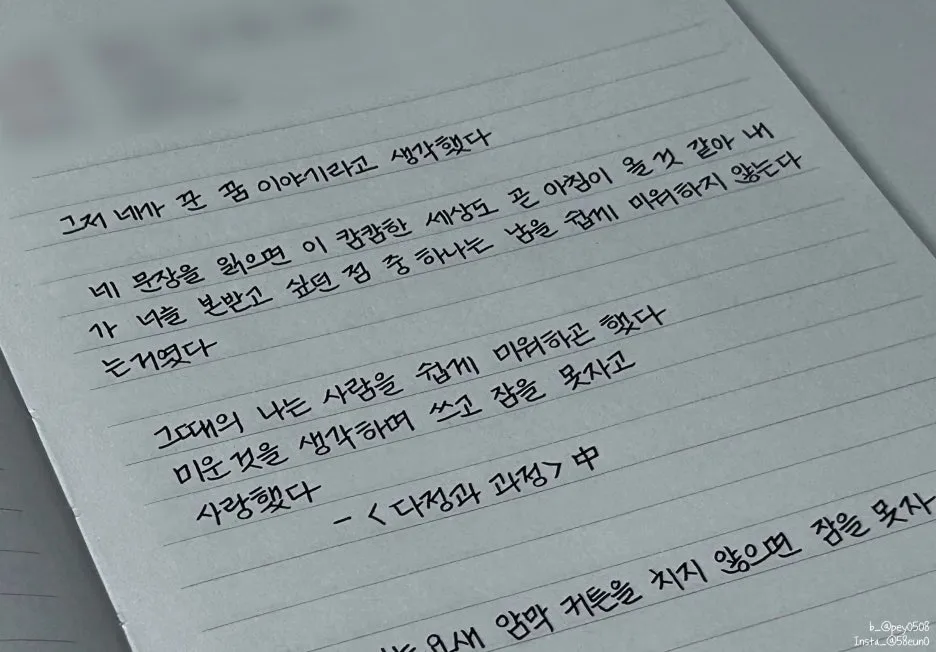 그저 네가 꾼 꿈 이야기라고 생각했다
네 문장을 읽으면 이 캄캄한 세상도 곧 아침이 올것 같아 내
가 너를 본받고 싶던 점 중 하나는 남을 쉽게 미워하지 않는다
는거였다
그때의 나는 사람을 쉽게 미워하곤 했다
미운것을 생각하며 쓰고 잠을 못자고
사랑했다
- <다정과 과정> 中
요새 암막 커튼을 치지 않으면 잠을 못자
b_@pey0508
Insta_@58eun0